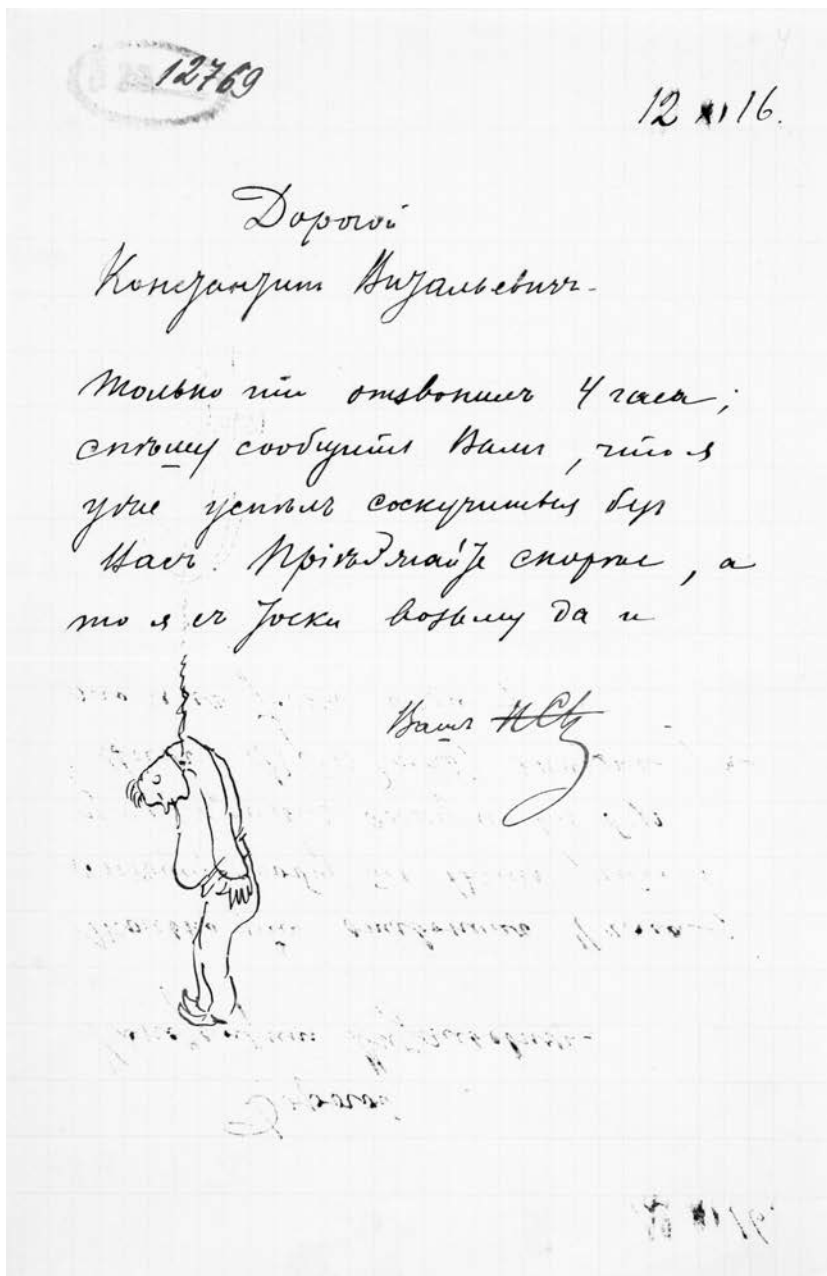 12769
12 XI 16.
Дорогой
Константин Витальевич-
только что отзвонилъ 4 часа;
спѣшу сообщить Вамъ, что я
уже успѣлъ соскучиться без
Васъ. Пріѣзжайте скорѣе, а
то я съ тоски возьму да и
Вашъ